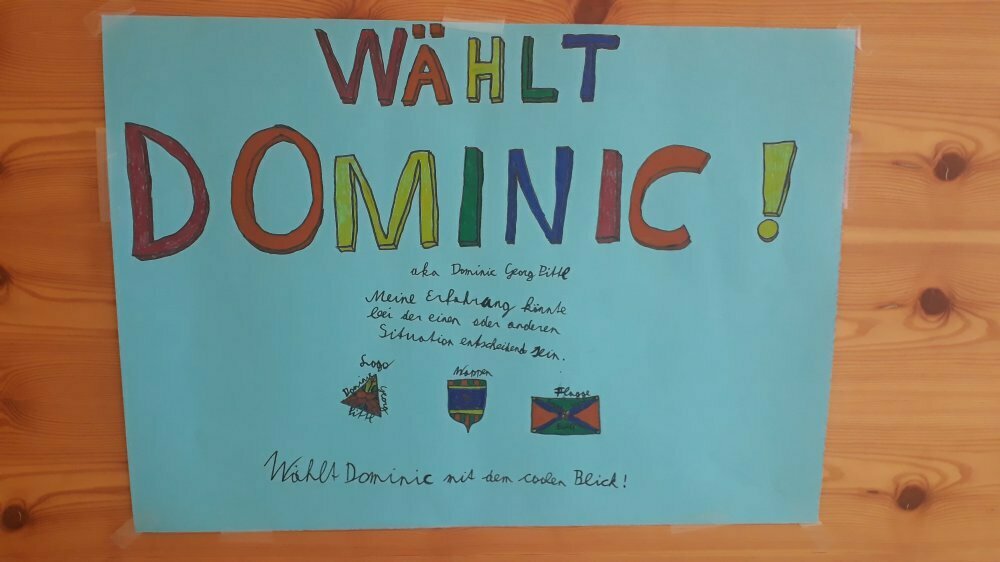 WÄHLT
DOMINIC!
aka Dominic Georg Pittl
Meine Erfahrung könnte
bei der einen oder anderen
Situation entscheidend sein.
Logo
Dominic
Georg
Pittl
Wappen
Flagge
Wählt Dominic mit dem coolen Blick!